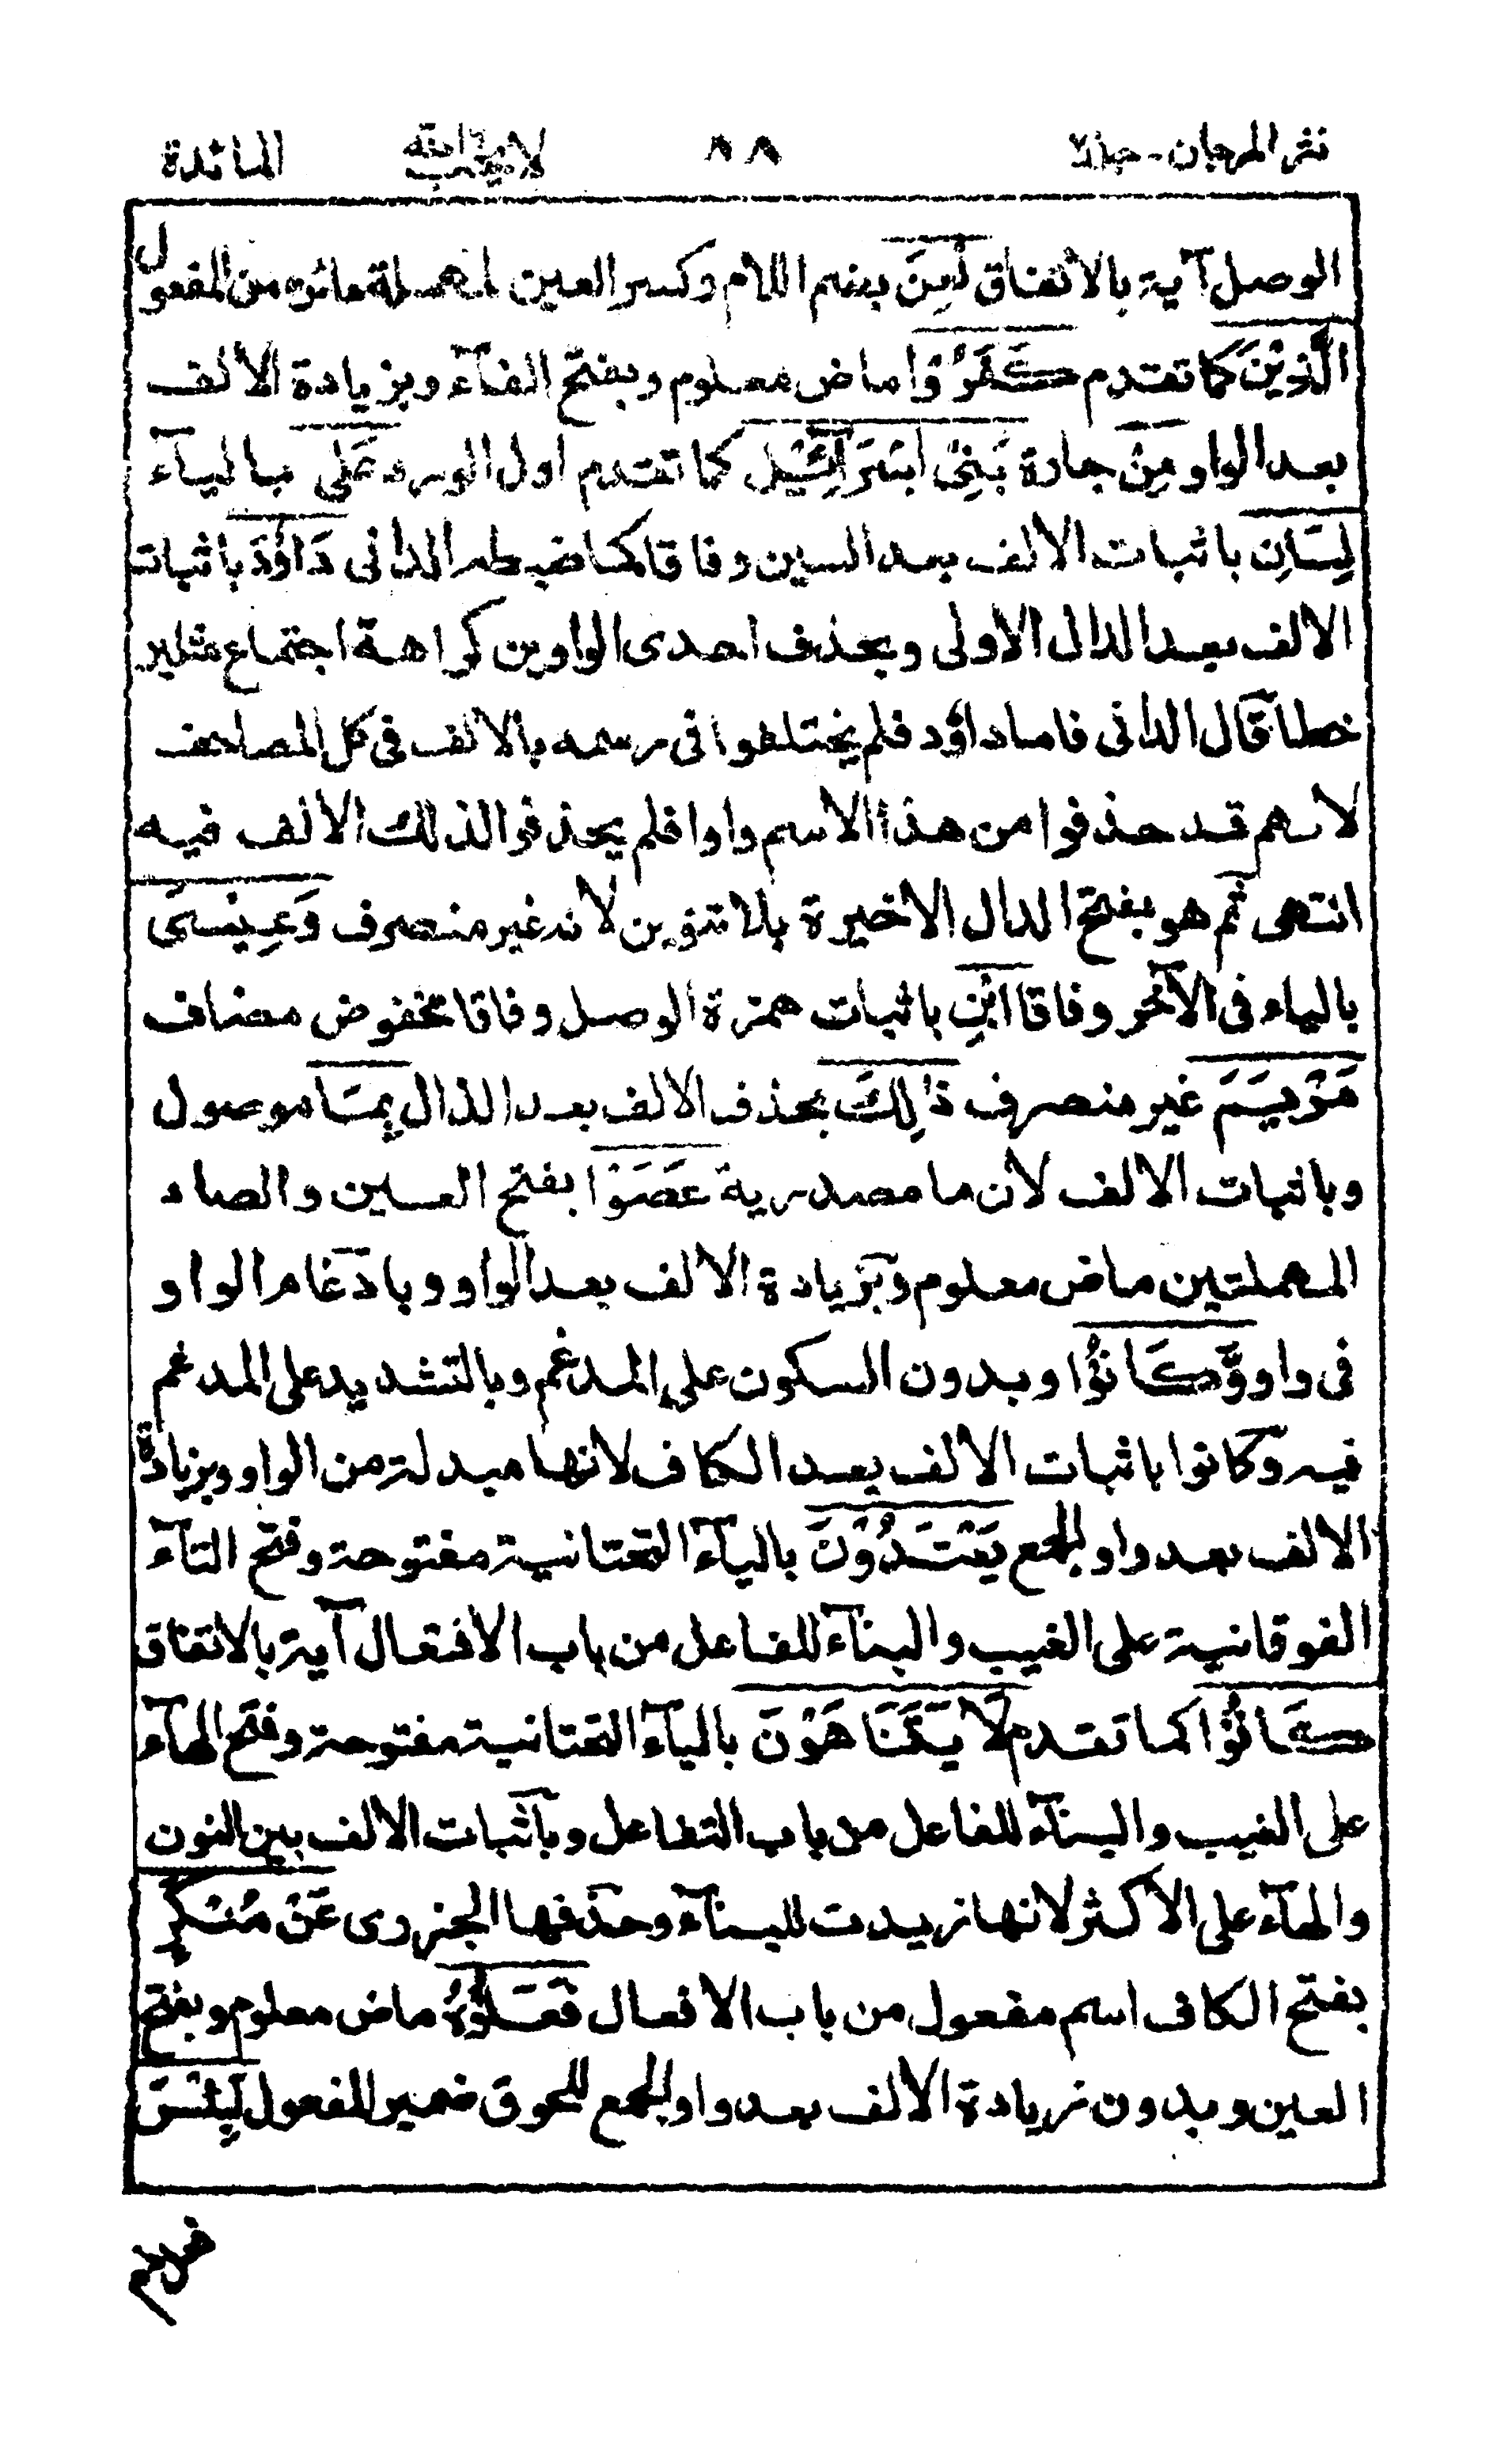 نثر المرجان - جلد٢ ٨٨ لا يحب الله المائدة
الوصل آية بالاتفاق لُعِنَ بضم اللام وكسر العين المهملة ماض من المفعول
الَّذِيْنَ كما تقدم كَفَرُوْا ماض معلوم وبفتح الفآء وبزيادة الالف
بعد الواو مِنْ جارة بَنِىْ اِسْرَآئِيْلَ كما تقدم اول الورد عَلٰى بالياء
لِسَانِ باثبات الالف بعد السين وفاقا كما ضبطه الدانى دَاوٗدَ باثبات
الالف بعد الدال الاولى وبحذف احدى الواوين كراهة اجتماع مثلين
خطا قال الدانى فاما داؤد فلم يختلفوا فى رسمه بالالف فى كل المصاحف
لانهم قد حذفوا من هذا الاسم واوا فلم يحذفوا لذلك الالف فيه
انتهى ثم هو بفتح الدال الاخيرة بلا تنوين لانه غير منصرف وَعِيْسَى
بالياء فى الآخر وفاقا ابْنِ باثبات همزة الوصل وفاقا مخفوض مضاف
مَرْيَمَ غير منصرف ذٰلِكَ بحذف الالف بعد الذال بِمَا موصول
وباثبات الالف لان ما مصدرية عَصَوْا بفتح العين والصاد
المهملتين ماض معلوم وبزيادة الالف بعد الواو وبادغام الواو
فى واو وَّكَانُوْا وبدون السكون على المدغم وبالتشديد على المدغم
فيه وكانوا باثبات الالف بعد الكاف لانها مبدلة من الواو وبزيادة
الالف بعد واو الجمع يَعْتَدُوْنَ بالياء التحتانية مفتوحة وفتح التآء
الفوقانية على الغيب والبنآء للفاعل من باب الافتعال آية بالاتفاق
كَانُوْا كما تقدم لَا يَتَنَاهَوْنَ بالياء التحتانية مفتوحة وفتح الهآء
على الغيب والبنآء للفاعل من باب التفاعل وباثبات الالف بين النون
والهآء على الاكثر لانها زيدت للبنآء وحذفها الجزرى عَنْ مُنْكَرٍ
بفتح الكاف اسم مفعول من باب الافعال فَعَلُوْهُ ماض معلوم وبفتح
العين وبدون زيادة الالف بعد واو الجمع للحوق ضمير المفعول لَبِئْسَ